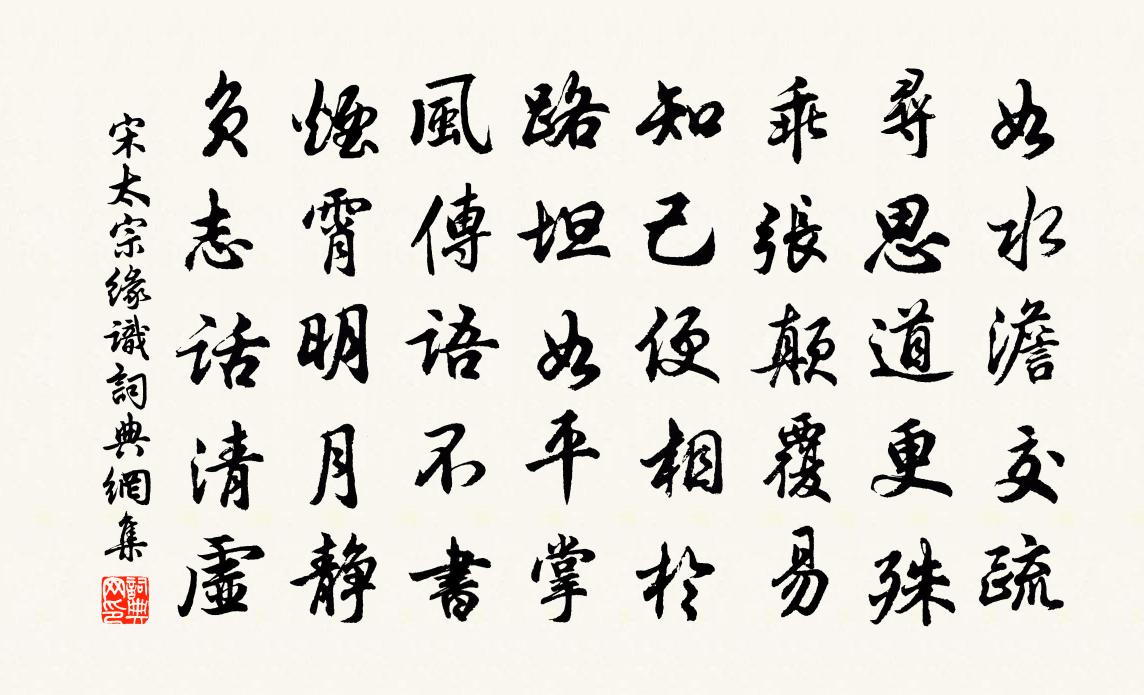 如水澹交疏
尋思道更殊
乖張顛覆易
知己便相於
路坦如平掌
風傳語不書
煙霄明月靜
負志話清虛
宋太宗緣識詞典網集
詞典網印